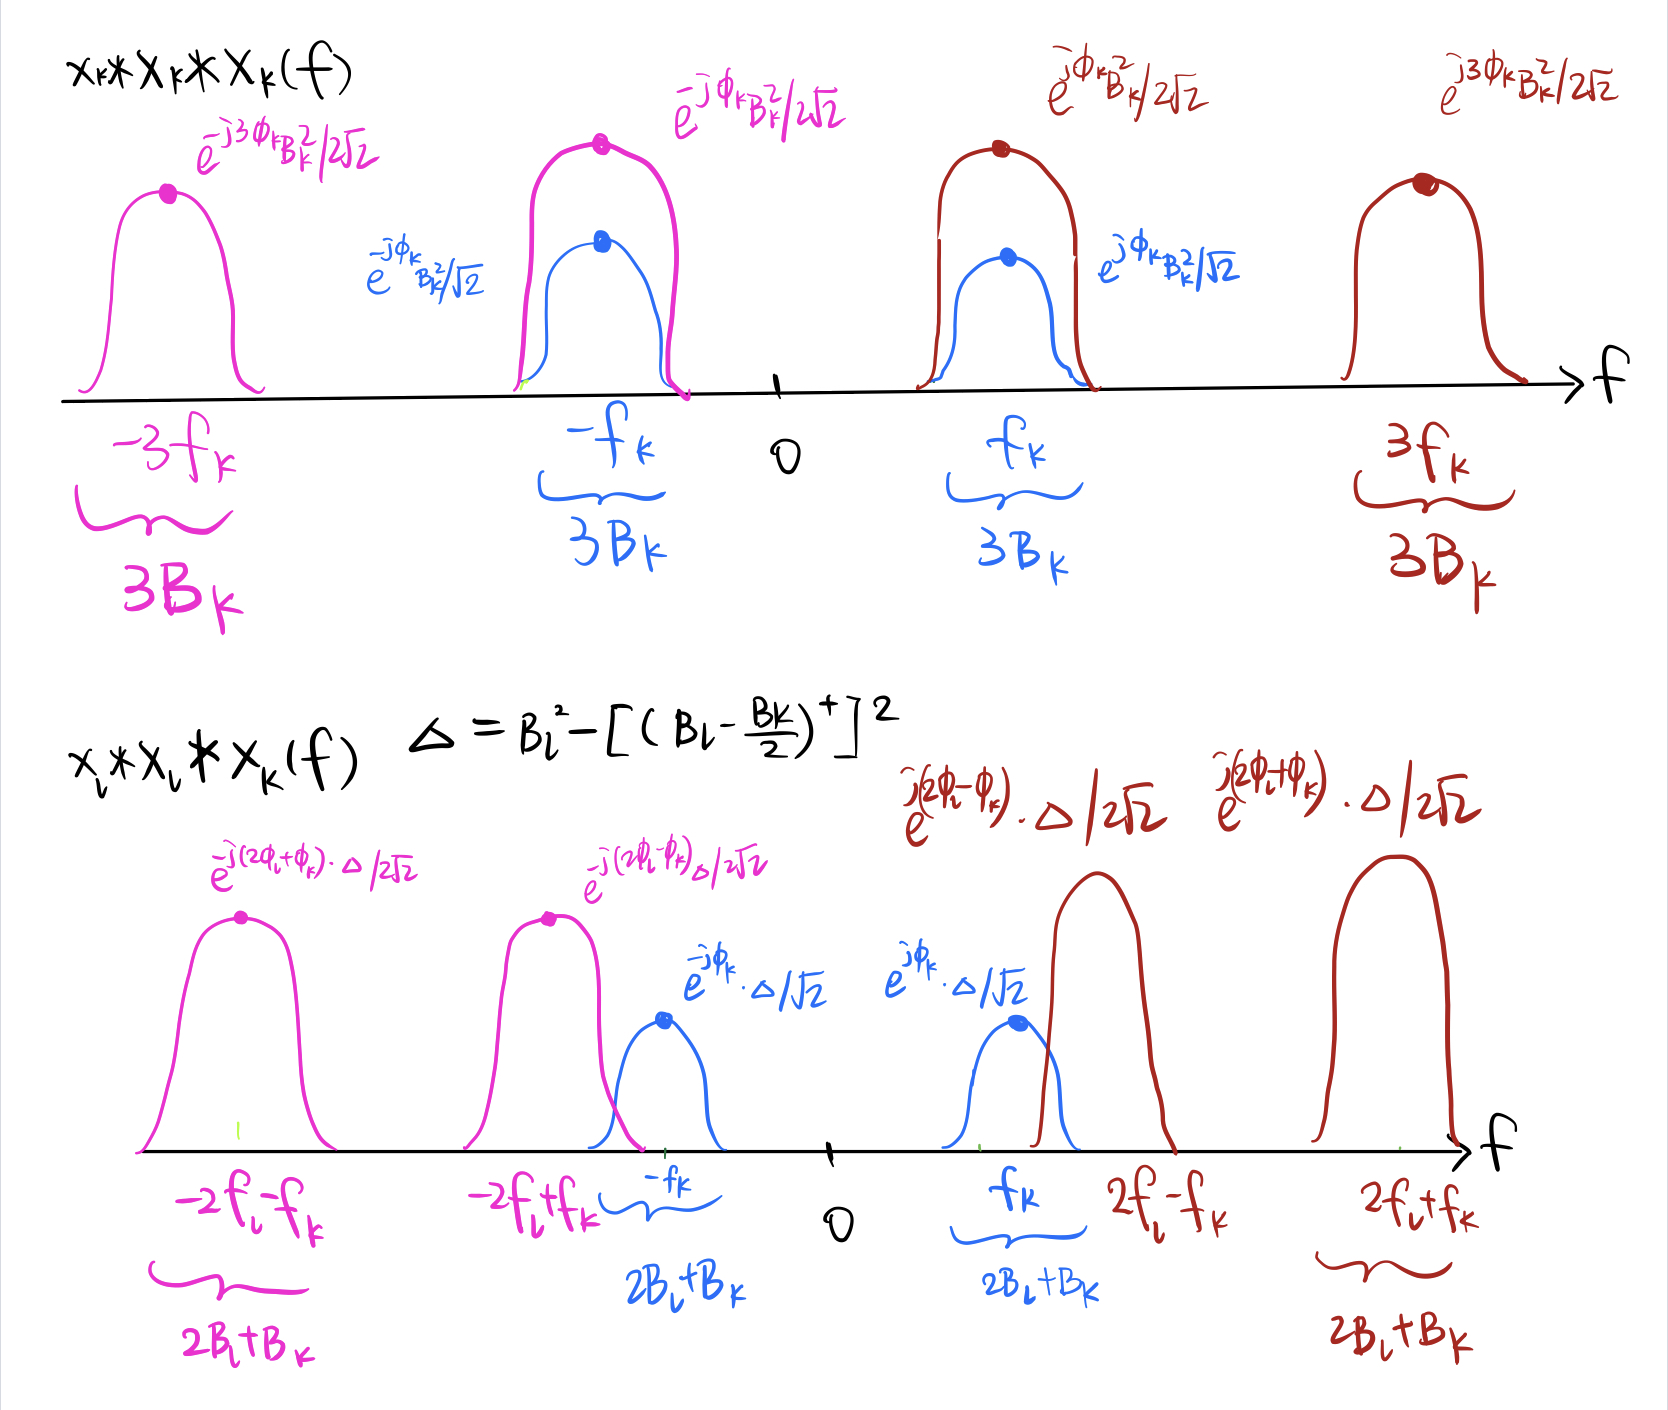 x_k*X_k*X_k(f)
e^{-j3ϕ_k} B_k^2/2√2
e^{-jϕ_k} B_k^2/2√2
e^{jϕ_k} B_k^2/2√2
e^{j3ϕ_k} B_k^2/2√2
e^{-jϕ_k} B_k^2/√2
e^{jϕ_k} B_k^2/√2
f
-3f_k
-f_k
0
f_k
3f_k
3B_k
3B_k
3B_k
3B_k
x_l*X_l*X_k(f)
Δ = B_l^2-[(B_l-\frac{B_k}{2})^+]^2
e^{-j(2ϕ_l+ϕ_k)}·Δ/2√2
e^{-j(2ϕ_l-ϕ_k)}Δ/2√2
e^{j(2ϕ_l-ϕ_k)}·Δ/2√2
e^{j(2ϕ_l+ϕ_k)}·Δ/2√2
e^{-jϕ_k}·Δ/√2
e^{jϕ_k}·Δ/√2
f
-2f_l-f_k
-2f_l+f_k
-f_k
0
f_k
2f_l-f_k
2f_l+f_k
2B_l+B_k
2B_l+B_k
2B_l+B_k
2B_l+B_k